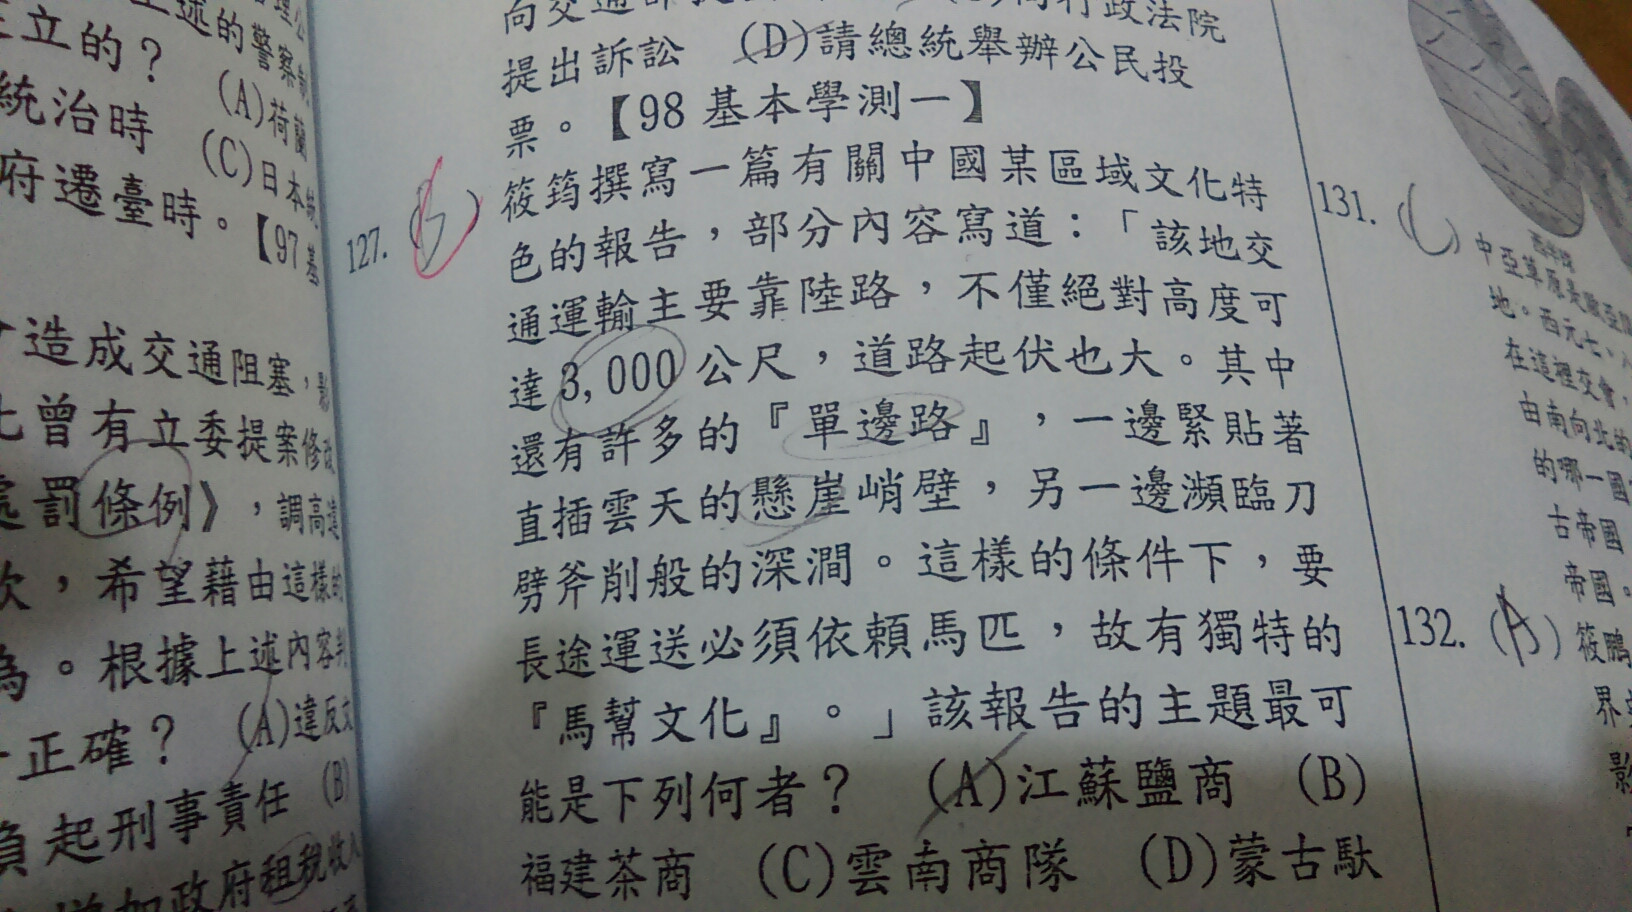 述的警察制
立的？
(A)荷蘭
統治時
(C)日本統
府遷臺時。【97基
造成交通阻塞，
曾有立委提案修改
處罰條例》，調高違
，希望藉由這樣的
。根據上述內容判
正確？ (A)違反
負起刑事責任 (B)
政府租稅收入
行政法院
提出訴訟 (D)請總統舉辦公民投
票。【98基本學測一】
127. (B) 筱筠撰寫一篇有關中國某區域文化特
色的報告，部分內容寫道：「該地交
通運輸主要靠陸路，不僅絕對高度可
達3,000公尺，道路起伏也大。其中
還有許多的『單邊路』，一邊緊貼著
直插雲天的懸崖峭壁，另一邊瀕臨刀
劈斧削般的深澗。這樣的條件下，要
長途運送必須依賴馬匹，故有獨特的
『馬幫文化』。」該報告的主題最可
能是下列何者？ (A)江蘇鹽商 (B)
福建茶商 (C)雲南商隊 (D)蒙古馱
131. (C) 中亞草原是歐亞
地。西元七、八
在這裡交會，
由南向北的
的哪一國
古帝國
帝國。
132. (A) 筱鵬
界
影